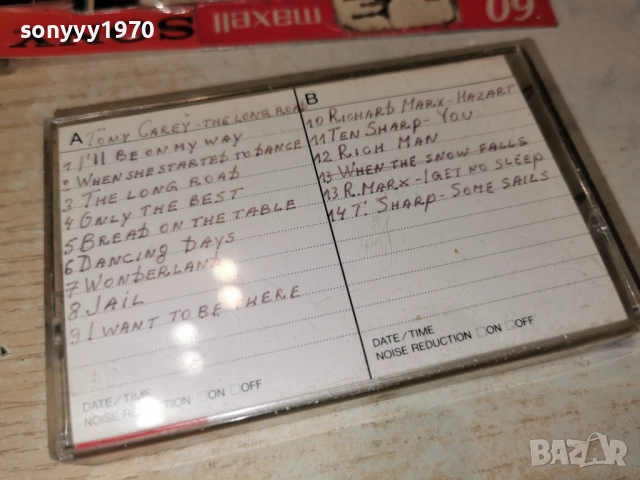 sonyyy1970
maxell
SONY
60
A TONY CAREY - THE LONG ROAD
1 I'LL BE ON MY WAY
2 WHEN SHE STARTED TO DANCE
3 THE LONG ROAD
4 ONLY THE BEST
5 BREAD ON THE TABLE
6 DANCING DAYS
7 WONDERLAND
8 JAIL
9 I WANT TO BE THERE
DATE/TIME
NOISE REDUCTION □ON □OFF
B
10 RICHARD MARX - HAZART
11 TEN SHARP - YOU
12 RICH MAN
13 WHEN THE SNOW FALLS
13 R. MARX - I GET NO SLEEP
14 T. SHARP - SOME SAILS
DATE/TIME
NOISE REDUCTION □ON □OFF
BAZAR
bazar.bg